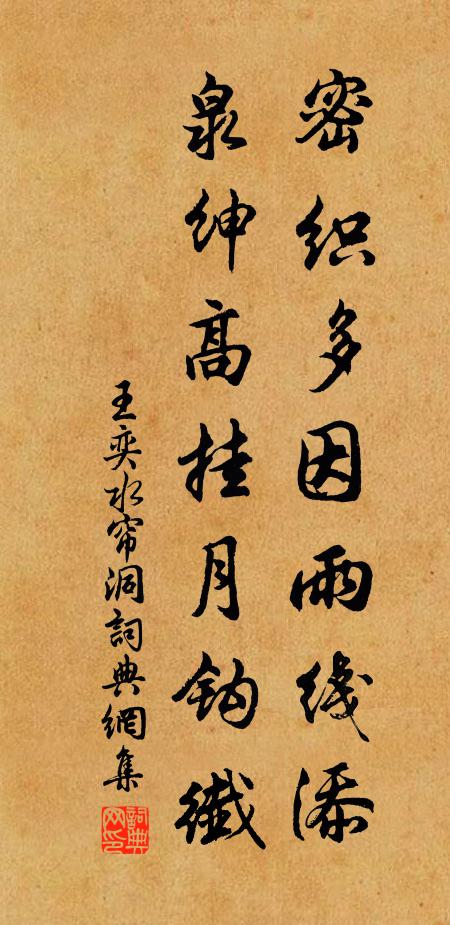 密织多因雨线添
泉绅高挂月钩纖
王奕水帘洞詞典網集
詞典網印